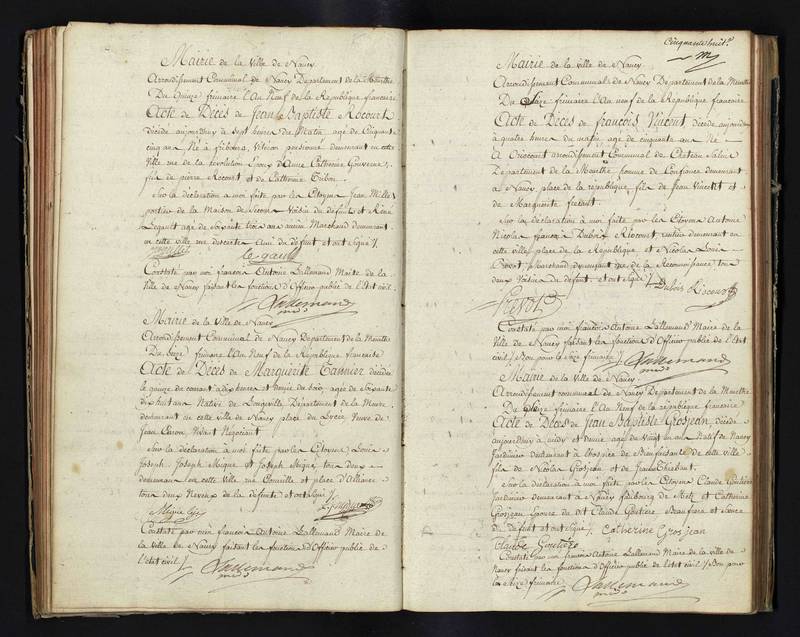 Mairie de la Ville de Nancy
Arrondissement Communal de Nancy Département de la Meurthe
Du quinze frimaire l'An Neuf de la République française
Acte de Décès de Jean Baptiste Recourt
décédé aujourd'huy à sept heures du Matin, age de Cinquante
cinq ans, Né à fribourg, Vétéran pensionné demeurant en cette
Ville rue de la révolution Epoux d'Anne Catherine Gouverne,
fils de pierre Recourt et de Catherine
Sur la déclaration à moi faite par les Citoyens Jean Millet
portier de la Maison de Secours Voisin du défunt et Réné
Legault age de Soixante trois ans ancien Marchand demeurant
en cette ville rue descartes Ami du défunt et ont Signé /.
le gault
Constaté par moi françois Antoine Lallemand Maire de la
Ville de Nancy faisant les fonctions d'Officier public de l'état civil.
Lallemand
Mairie de la Ville de Nancy
Arrondissement Communal de Nancy Département de la Meurthe
Du Seize frimaire l'An Neuf de la République française
Acte de Décès de Marguerite Tannier décédée
le quinze du courant à dix heures et demie du Soir, agée de Soixante
dix huit ans Native de Longeville Département de la Meuse
demeurant en cette ville de Nancy place du Lycée Veuve de
Jean Caron Vivant Négociant
Sur la déclaration à moi faite par les Citoyens Louis
Joseph Joseph Mique et Joseph Mique tous deux
demeurans en cette Ville rue Callot et place d'Alliance
tous deux Neveux de la défunte et ont signé /.
Mique
Constaté par moi françois Antoine Lallemand Maire de
la Ville de Nancy faisant les fonctions d'Officier public de
l'état civil /.
Lallemand
Cinquante huit
Mairie de la ville de Nancy
Arrondissement Communal de Nancy Département de la Meurthe
Du Seize frimaire l'An neuf de la République française
Acte de Décès de françois Vincent décédé aujourd'huy
à quatre heures du matin age de cinquante ans Né
à arrondissement Communal de Château Salins
Département de la Meurthe, homme de Confiance demeurant
à Nancy, place de la république, fils de Jean Vincent et
de Marguerite
Sur la déclaration à moi faite par les Citoyens Antoine
Nicolas françois Dubois Riocourt rentier demeurant en
cette ville place de la République et Nicolas Louis
Prevot Marchand demeurant rue de la Reconnaissance tous
deux Voisins du défunt et ont Signé /.
Dubois Riocourt
Prevot
Constaté par moi françois Antoine Lallemand Maire de la
Ville de Nancy faisant les fonctions d'Officier public de l'état
civil / Bon pour le Seize frimaire /.
Lallemand
Mairie de la Ville de Nancy
Arrondissement communal de Nancy Département de la Meurthe
Du Seize frimaire l'An Neuf de la république française
Acte de Décès de Jean Baptiste Grosjean, décédé
aujourd'huy à midy et demie age de Vingt un ans Natif de Nancy
Jardinier demeurant à l'hospice de Bienfaisance de cette ville
fils de Nicolas Grosjean et de Jeanne Thiebaut.
Sur la déclaration à moi faite par les Citoyens Claude
Jardinier demeurant à Nancy faubourg de Metz et Catherine
Grosjean Epouse du dit Claude frere et Soeur
du défunt et ont Signé /. Catherine Grosjean
Claude
Constaté par moi françois Antoine Lallemand Maire de la ville de
Nancy faisant les fonctions d'Officier public de l'état civil / Bon pour
le Seize frimaire
Lallemand